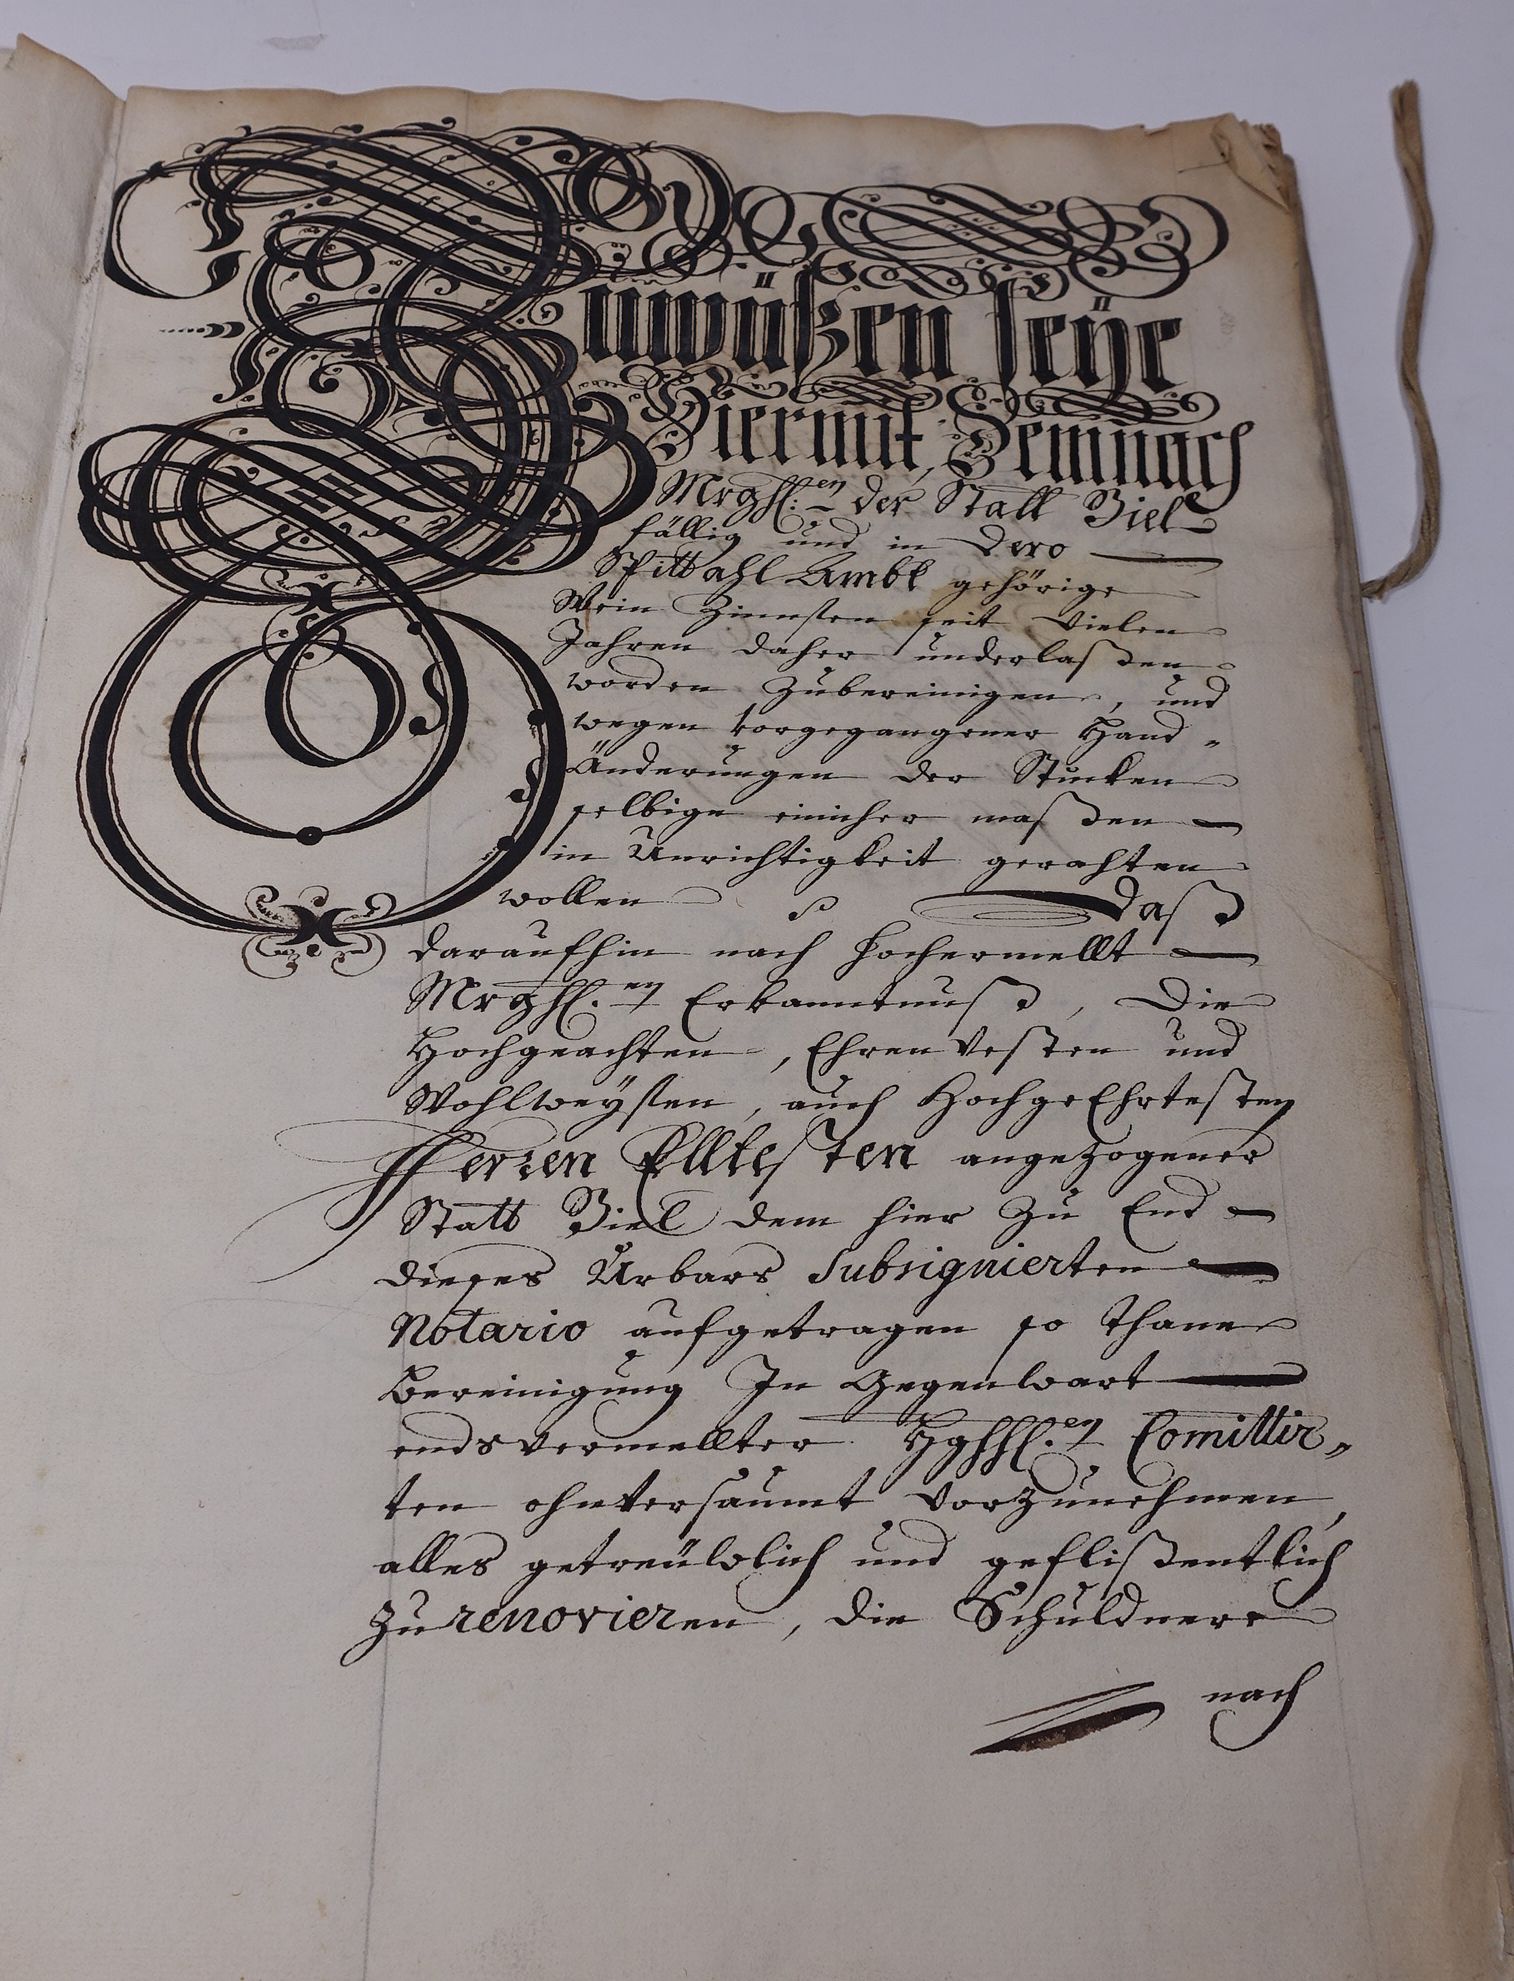 Zuwüßen seÿe
Hiermit, Demnach
Mrghl.en der Statt Biel
fällig und in dero
Spittahl Ambt gehörige
Wein Zinnsten seit Vielen
Jahren daher underlaßen
worden Zubereinigen, und
wegen vorgegangener Hand„
Änderungen der Stucken
selbige einicher maßen
in Unrichtigkeit gerahten
wollen daß
daraufhin nach hochermellt
Mrghl.en Erkanntnuß, Die
Hochgeachten, Ehren Vesten und
Wohlweÿsen, auch HochgeEhrtesten
Herren Elltesten angezogener
Statt Biel dem hier Zu End
dieses Urbars Subsignierten
Notario aufgetragen so thane
Bereinigung In Gegenwart
endsvermellter Hghhl.en Comittir„
ten ohnversaumt vorzunehmen,
alles getreüwlich und geflißentlich
zu renovieren, die Schuldnere
nach